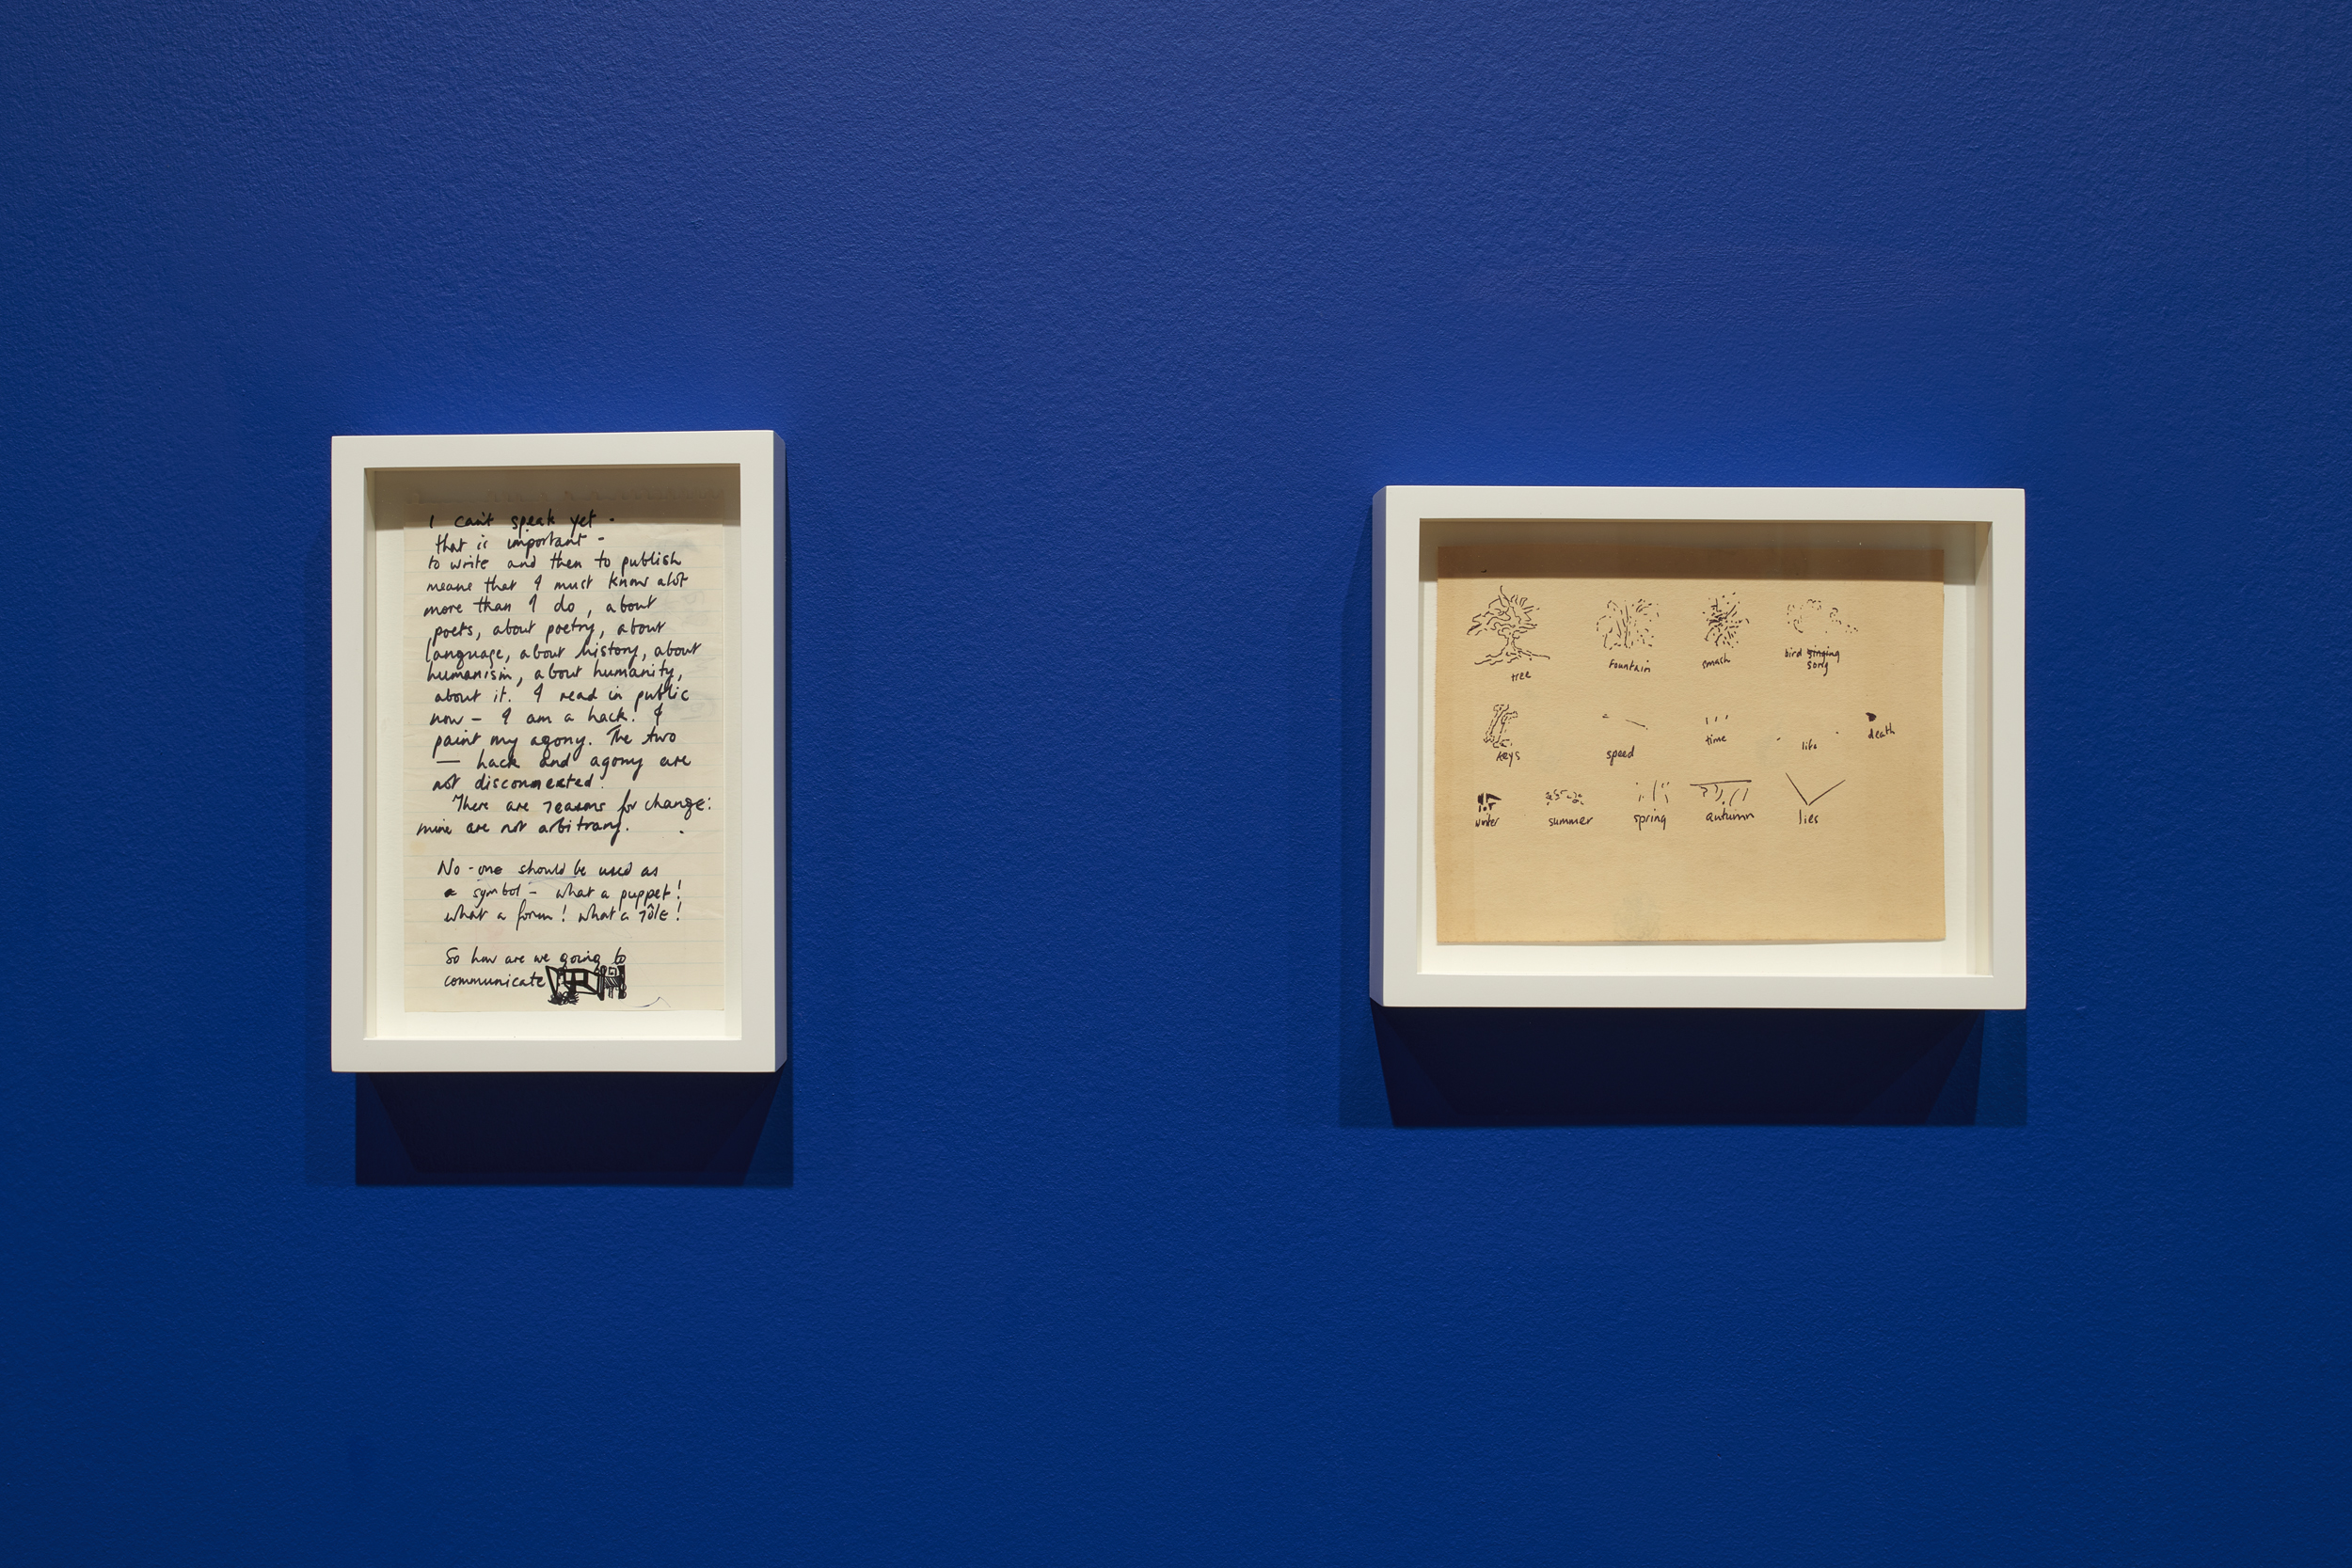 I can't speak yet -
that is important -
to write and then to publish
means that I must know alot
more than I do, about
poets, about poetry, about
language, about history, about
humanism, about humanity,
about it. I read in public
now - I am a hack. I
paint my agony. The two
— hack and agony are
not disconnected.
There are reasons for change:
mine are not arbitrary.
No-one should be used as
a symbol - what a puppet!
what a forum! what a rôle!
So how are we going to
communicate
tree
fountain
smash
bird singing
song
keys
speed
time
life
death
winter
summer
spring
autumn
lies